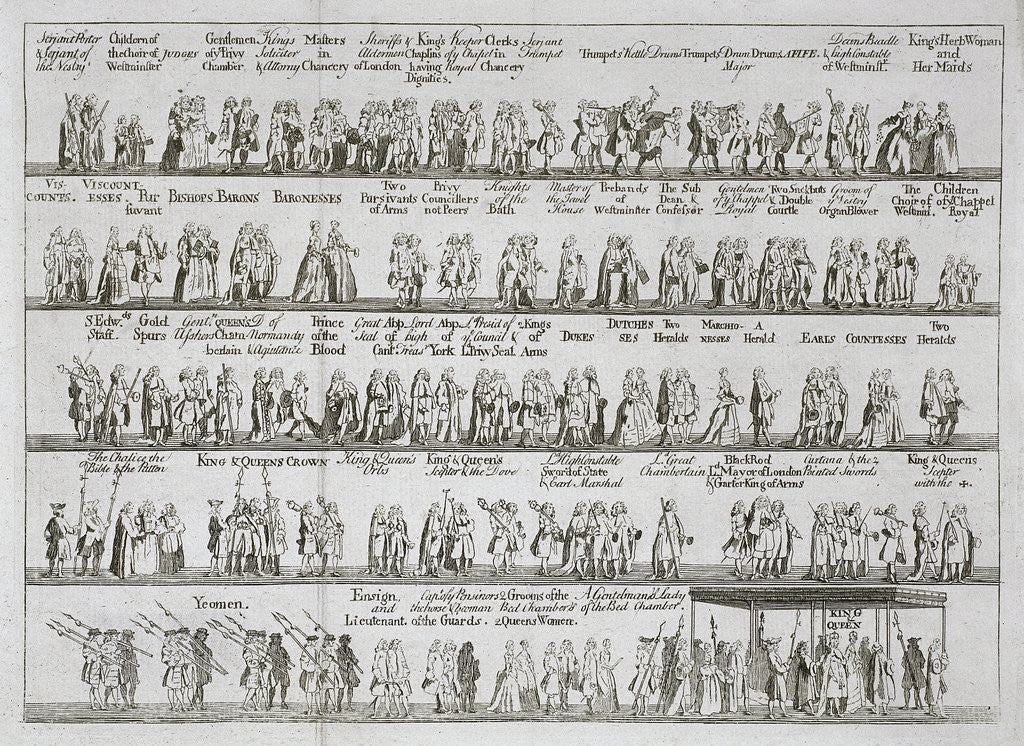 Serjant Porter & Serjant of the Vestry
Childern of the Choir of Westminster
JUDGES
Gentlemen of ye Privy Chamber
Kings Soliciter & Attorny
Masters in Chancery
Sheriffs & Aldermen of London
King's Chaplins having Dignities.
Keeper of ye Chapel Royal
Clerks in Chancery
Serjant Trumpet
Trumpets
Kettle Drums
Trumpets
Drum Major
Drums
A FIFE.
Deans Beadle & high Constable of Westminstr.
King's Herb Woman and Her Maids
VISCOUNTS.
VISCOUNTESSES.
Pursuivant
BISHOPS
BARONS
BARONESSES
Two Pursivants of Arms
Privy Councillers not Peers
Knights of the Bath
Master of the Jewel House
Prebands of Westminster
The Sub Dean & Confesser
Gentelmen of ye Chappel Royal
Two Sackbuts & Double Courtle
Groom of ye Vestry Organ Blower
The Choir of Westminst.
Children of ye Chappel Royal
St. Edwds Staff.
Gold Spurs
Gentn Ushers
QUEEN'S Chamberlain
D of Normandy & Aquitance
Prince of the Blood
Great Seal
Abp of Cant
Lord high Treas
Abp of York
Ld Presid of ye Council & Ld Privy Seal
2 Kings of Arms
DUKES
DUTCHESSES
Two Heralds
MARCHIONESSES
A Herald
EARLS
COUNTESSES
Two Heralds
The Chalice the Bible & the Patten
KING & QUEENS CROWN
King & Queen's Orbs
King & Queen's Scepter & the Dove
Ld High Constable Sword of State & Earl Marshal
Ld Great Chamberlain
Black Rod Ld Mayor of London & Garter King of Arms
Curtana & the 2 Pointed Swords
King & Queens Scepter with the +.
Yeomen.
Ensign and Lieutenant
Cap. of ye Pensinors the horse & yeoman of the Guards.
2 Grooms of the Bed Chamber & 2 Queens Women.
A Gentelman & Lady of the Bed Chamber.
KING & QUEEN